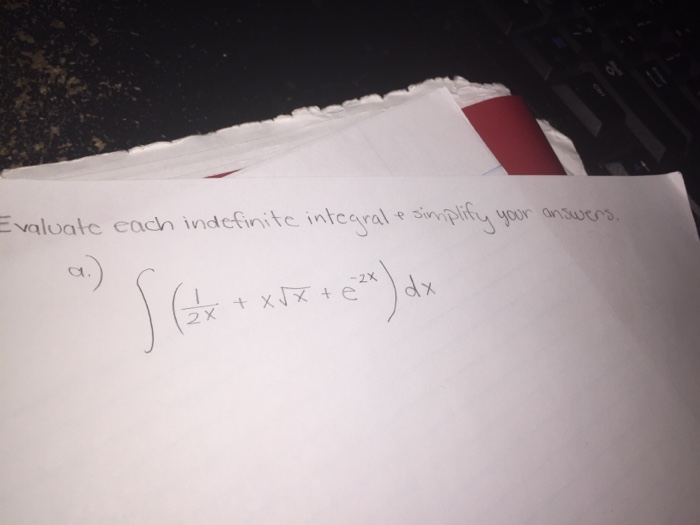 Evaluate each indefinite integral & simplify your answers.
a.) ∫ (1/2x + x√x + e^-2x) dx